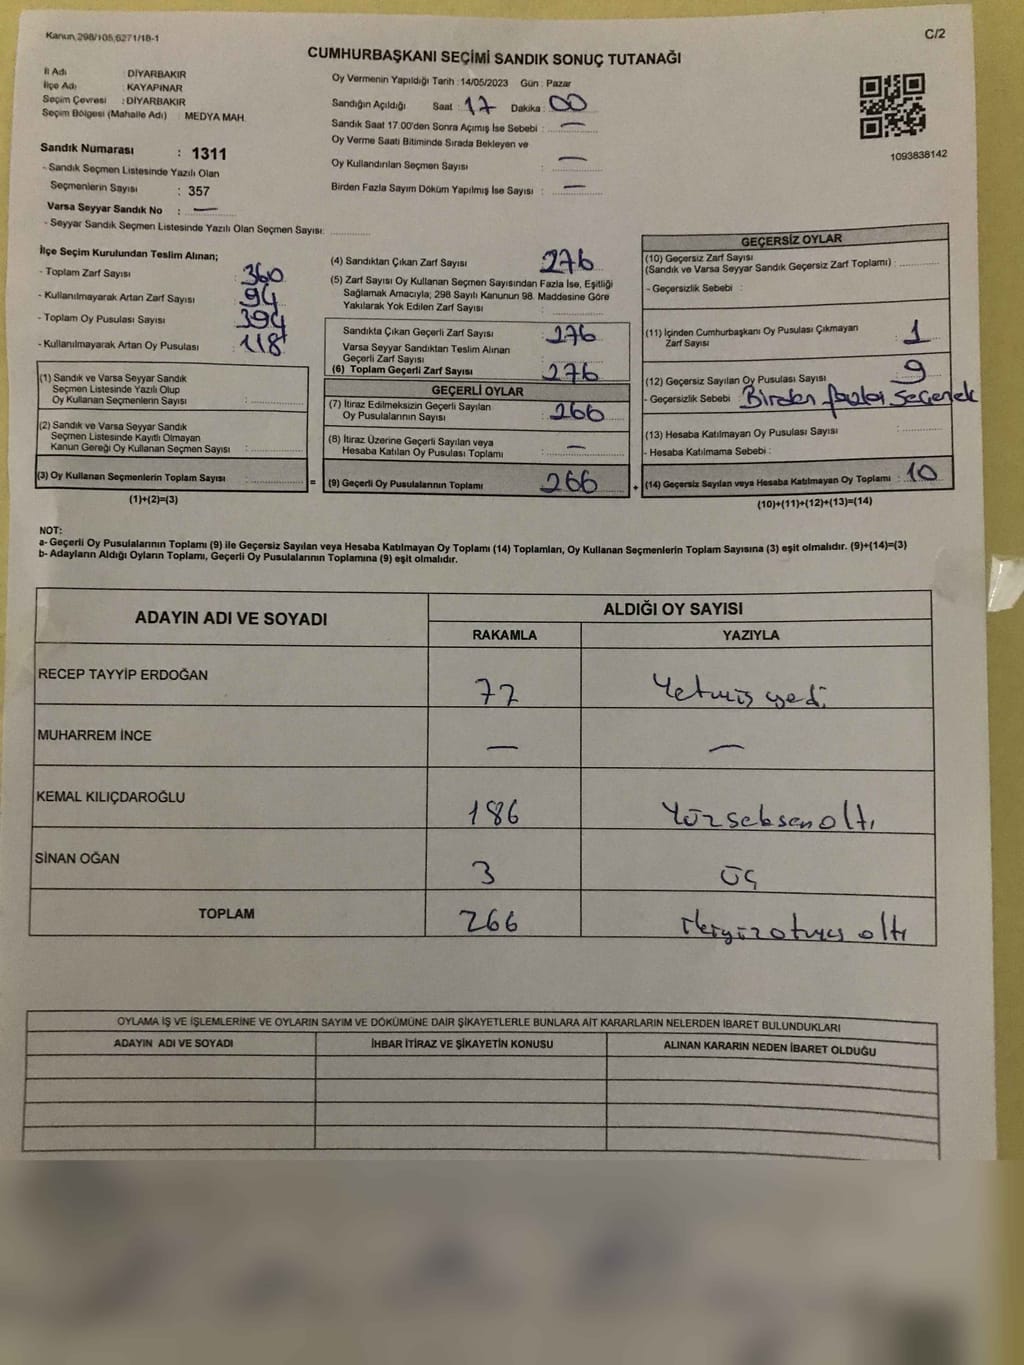 Kanun 298/105,6271/18-1
C/2
CUMHURBAŞKANI SEÇİMİ SANDIK SONUÇ TUTANAĞI
İl Adı : DİYARBAKIR
İlçe Adı : KAYAPINAR
Seçim Çevresi : DİYARBAKIR
Seçim Bölgesi (Mahalle Adı) : MEDYA MAH.
Sandık Numarası : 1311
- Sandık Seçmen Listesinde Yazılı Olan
Seçmenlerin Sayısı : 357
Varsa Seyyar Sandık No : —
- Seyyar Sandık Seçmen Listesinde Yazılı Olan Seçmen Sayısı:
Oy Vermenin Yapıldığı Tarih : 14/05/2023 Gün : Pazar
Sandığın Açıldığı Saat : 17 Dakika : 00
Sandık Saat 17.00'den Sonra Açımış İse Sebebi : —
Oy Verme Saati Bitiminde Sırada Bekleyen ve
Oy Kullandırılan Seçmen Sayısı : —
Birden Fazla Sayım Döküm Yapılmış İse Sayısı : —
1093838142
İlçe Seçim Kurulundan Teslim Alınan;
- Toplam Zarf Sayısı : 360
- Kullanılmayarak Artan Zarf Sayısı : 94
- Toplam Oy Pusulası Sayısı : 394
- Kullanılmayarak Artan Oy Pusulası : 118
(1) Sandık ve Varsa Seyyar Sandık
Seçmen Listesinde Yazılı Olup
Oy Kullanan Seçmenlerin Sayısı :
(2) Sandık ve Varsa Seyyar Sandık
Seçmen Listesinde Kayıtlı Olmayan
Kanun Gereği Oy Kullanan Seçmen Sayısı :
(3) Oy Kullanan Seçmenlerin Toplam Sayısı :
(1)+(2)=(3)
(4) Sandıktan Çıkan Zarf Sayısı : 276
(5) Zarf Sayısı Oy Kullanan Seçmen Sayısından Fazla İse, Eşitliği
Sağlamak Amacıyla; 298 Sayılı Kanunun 98. Maddesine Göre
Yakılarak Yok Edilen Zarf Sayısı :
Sandıkta Çıkan Geçerli Zarf Sayısı : 276
Varsa Seyyar Sandıktan Teslim Alınan
Geçerli Zarf Sayısı :
(6) Toplam Geçerli Zarf Sayısı : 276
GEÇERLİ OYLAR
(7) İtiraz Edilmeksizin Geçerli Sayılan
Oy Pusulalarının Sayısı : 266
(8) İtiraz Üzerine Geçerli Sayılan veya
Hesaba Katılan Oy Pusulası Toplamı : —
= (9) Geçerli Oy Pusulalarının Toplamı : 266
GEÇERSİZ OYLAR
(10) Geçersiz Zarf Sayısı
(Sandık ve Varsa Seyyar Sandık Geçersiz Zarf Toplamı) :
- Geçersizlik Sebebi :
(11) İçinden Cumhurbaşkanı Oy Pusulası Çıkmayan
Zarf Sayısı : 1
(12) Geçersiz Sayılan Oy Pusulası Sayısı : 9
- Geçersizlik Sebebi : Birden fazla seçenek
(13) Hesaba Katılmayan Oy Pusulası Sayısı :
- Hesaba Katılmama Sebebi :
+ (14) Geçersiz Sayılan veya Hesaba Katılmayan Oy Toplamı : 10
(10)+(11)+(12)+(13)=(14)
NOT:
a- Geçerli Oy Pusulalarının Toplamı (9) ile Geçersiz Sayılan veya Hesaba Katılmayan Oy Toplamı (14) Toplamları, Oy Kullanan Seçmenlerin Toplam Sayısına (3) eşit olmalıdır. (9)+(14)=(3)
b- Adayların Aldığı Oyların Toplamı, Geçerli Oy Pusulalarının Toplamına (9) eşit olmalıdır.
ADAYIN ADI VE SOYADI
ALDIĞI OY SAYISI
RAKAMLA YAZIYLA
RECEP TAYYİP ERDOĞAN 77 Yetmiş yedi
MUHARREM İNCE — —
KEMAL KILIÇDAROĞLU 186 Yüzseksenaltı
SİNAN OĞAN 3 üç
TOPLAM 266 altı
OYLAMA İŞ VE İŞLEMLERİNE VE OYLARIN SAYIM VE DÖKÜMÜNE DAİR ŞİKAYETLERLE BUNLARA AİT KARARLARIN NELERDEN İBARET BULUNDUKLARI
ADAYIN ADI VE SOYADI İHBAR İTİRAZ VE ŞİKAYETİN KONUSU ALINAN KARARIN NEDEN İBARET OLDUĞU